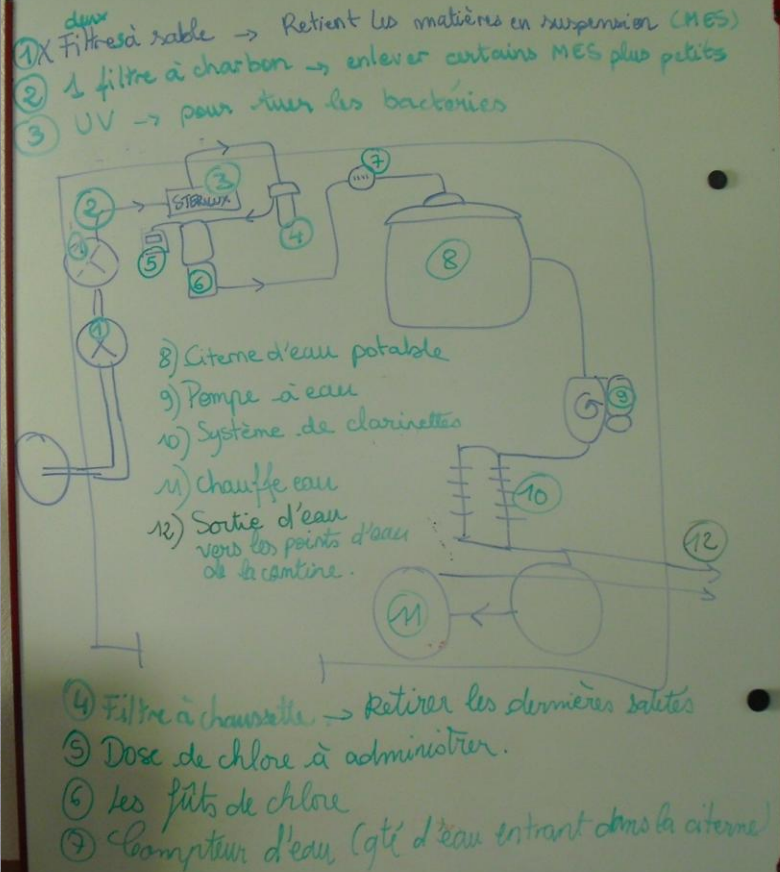 deux
① X Filtres à sable → Retient les matières en suspension (MES)
② 1 filtre à charbon → enlever certains MES plus petits
③ UV → pour tuer les bactéries
⑦
③
②
STERILUX
④
①
⑤
⑥
⑧
①
8) Citerne d'eau potable
9) Pompe à eau
⑨
10) Système de clarinettes
⑩
11) Chauffe eau
12) Sortie d'eau
vers les points d'eau
de la cantine.
⑫
⑪
④ Filtre à chaussette → Retirer les dernières saletés
⑤ Dose de chlore à administrer.
⑥ Les fûts de chlore
⑦ Compteur d'eau (qté d'eau entrant dans la citerne)